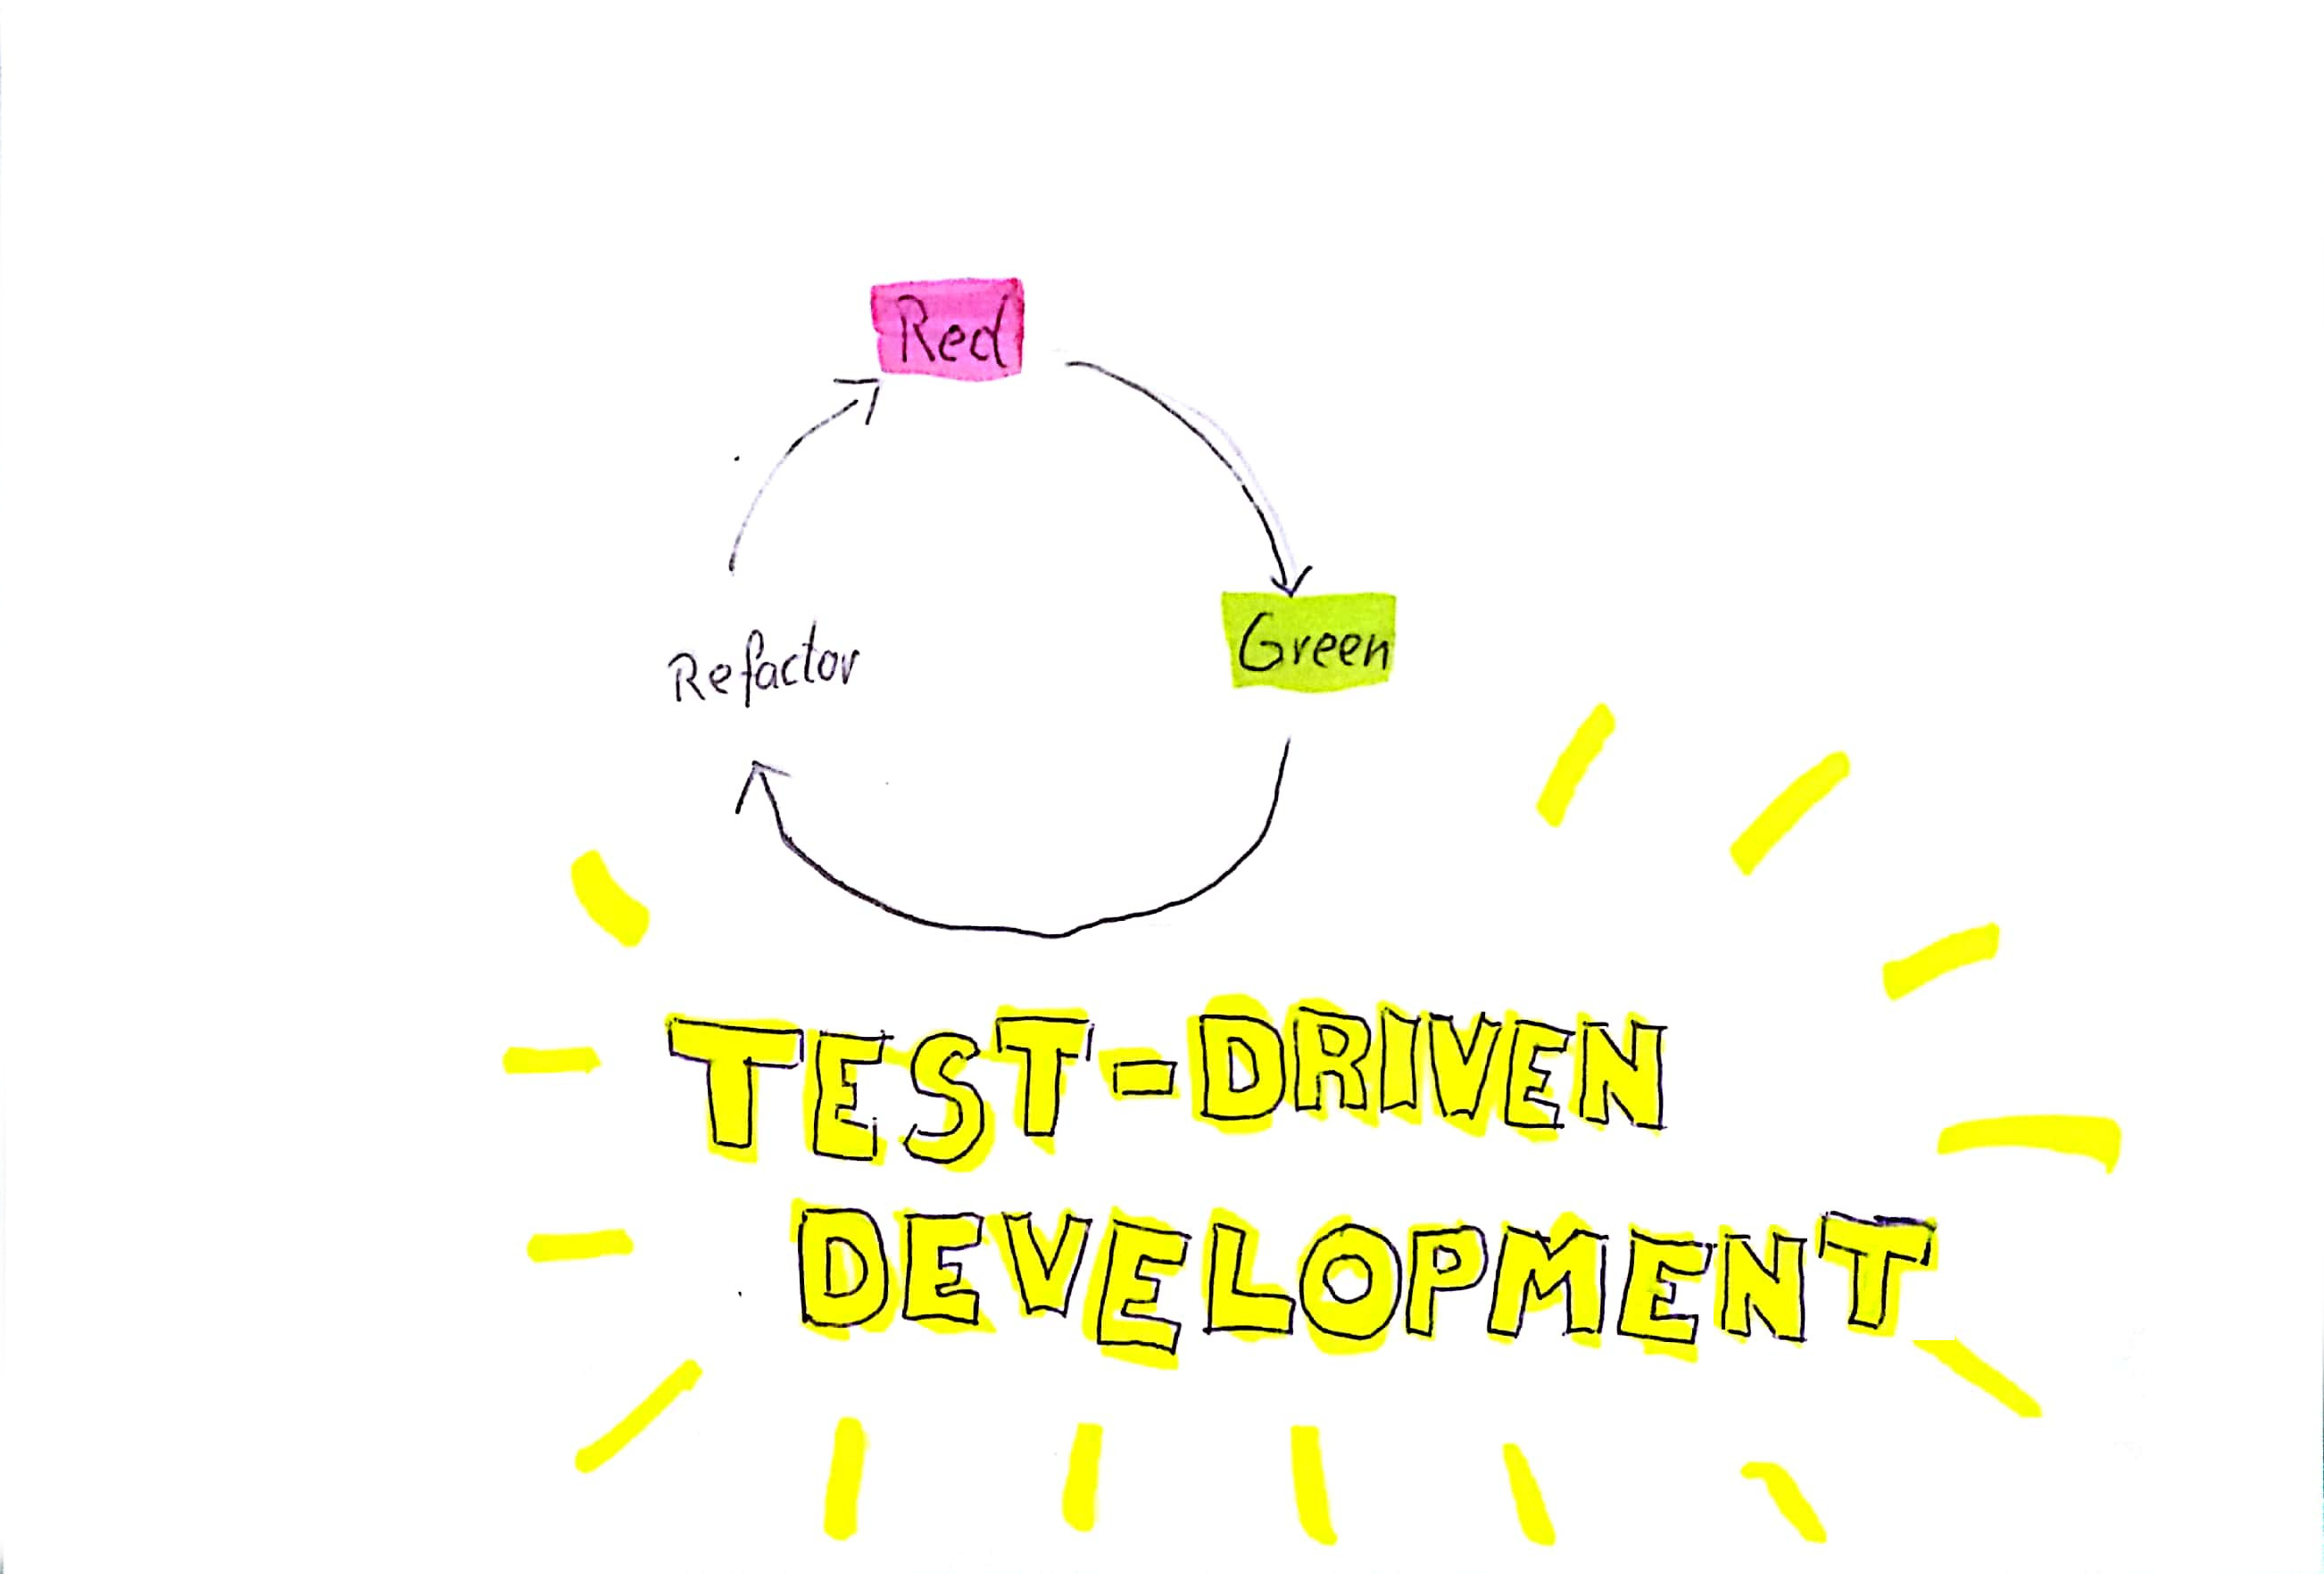 Red
Green
Refactor
TEST-DRIVEN
DEVELOPMENT